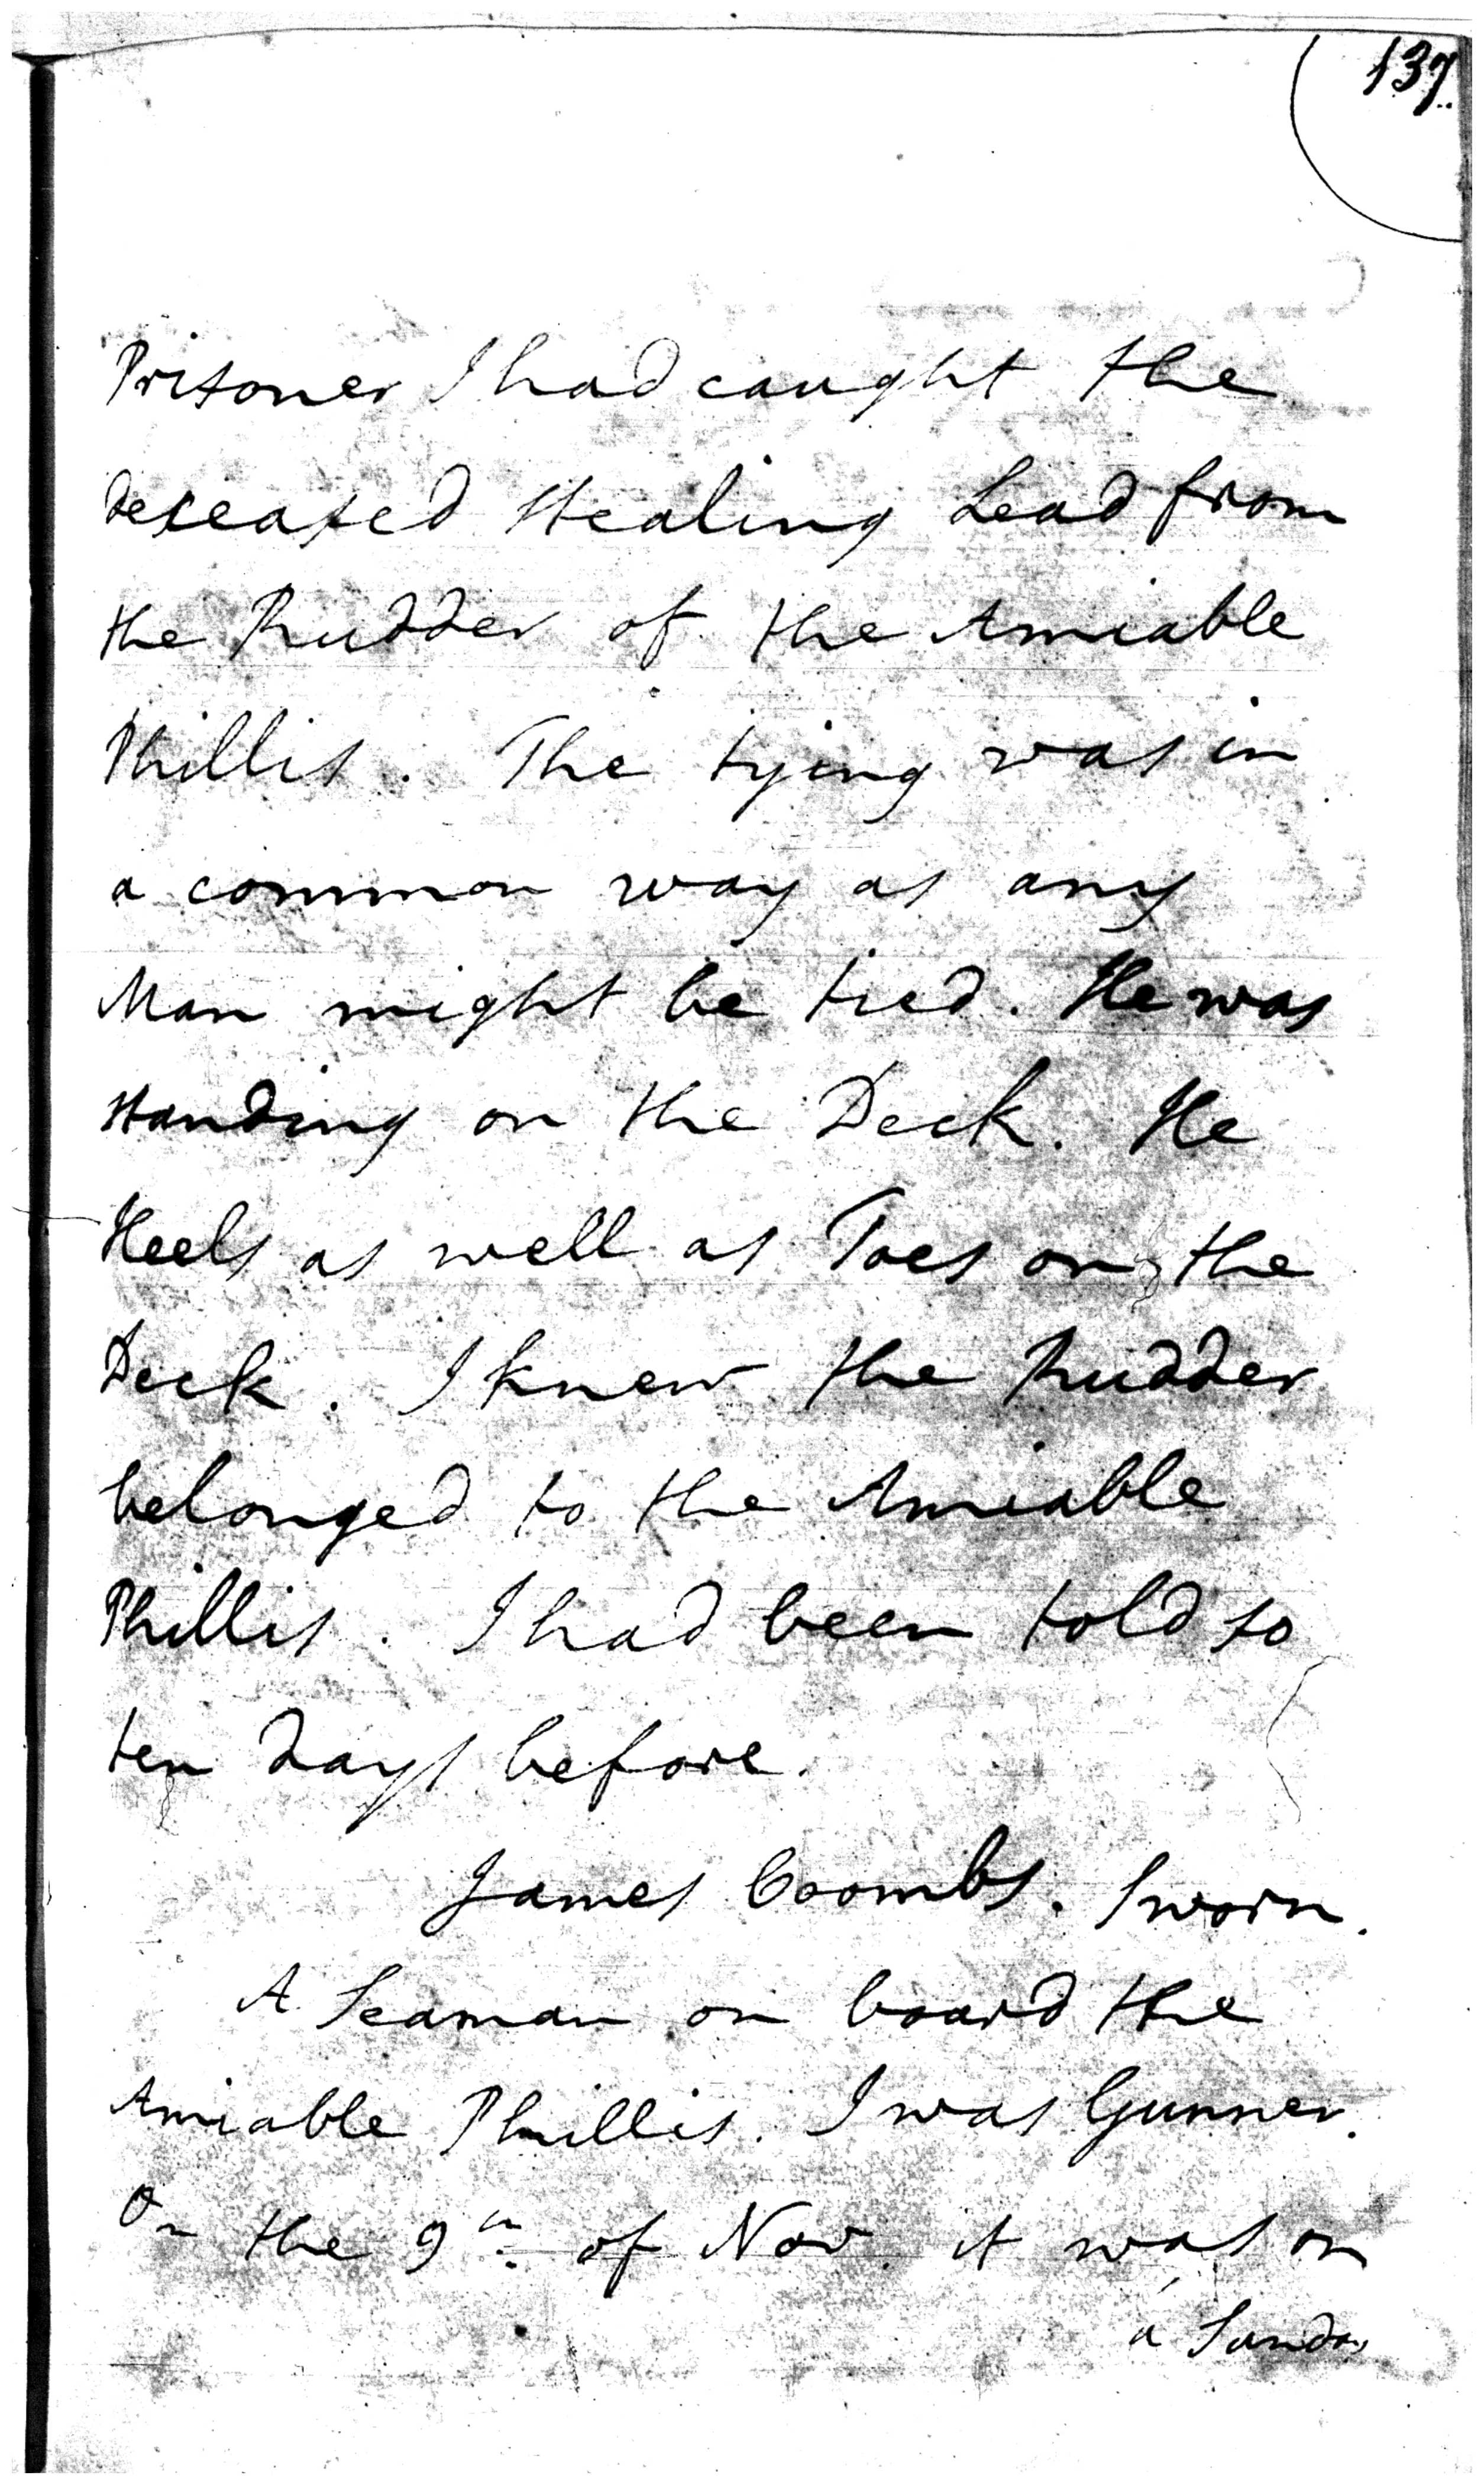 137.
Prisoner I had caught the
deceased stealing Lead from
the Rudder of the Amiable
Phillis. The tying was in
a common way as any
Man might be tied. He was
standing on the Deck. He
Heels as well as Toes on the
Deck. I knew the Rudder
belonged to the Amiable
Phillis. I had been told so
ten days before.
James Coombs. Sworn.
A Seaman on board the
Amiable Phillis. I was Gunner.
On the 9th of Nov. it was on
a Sunday